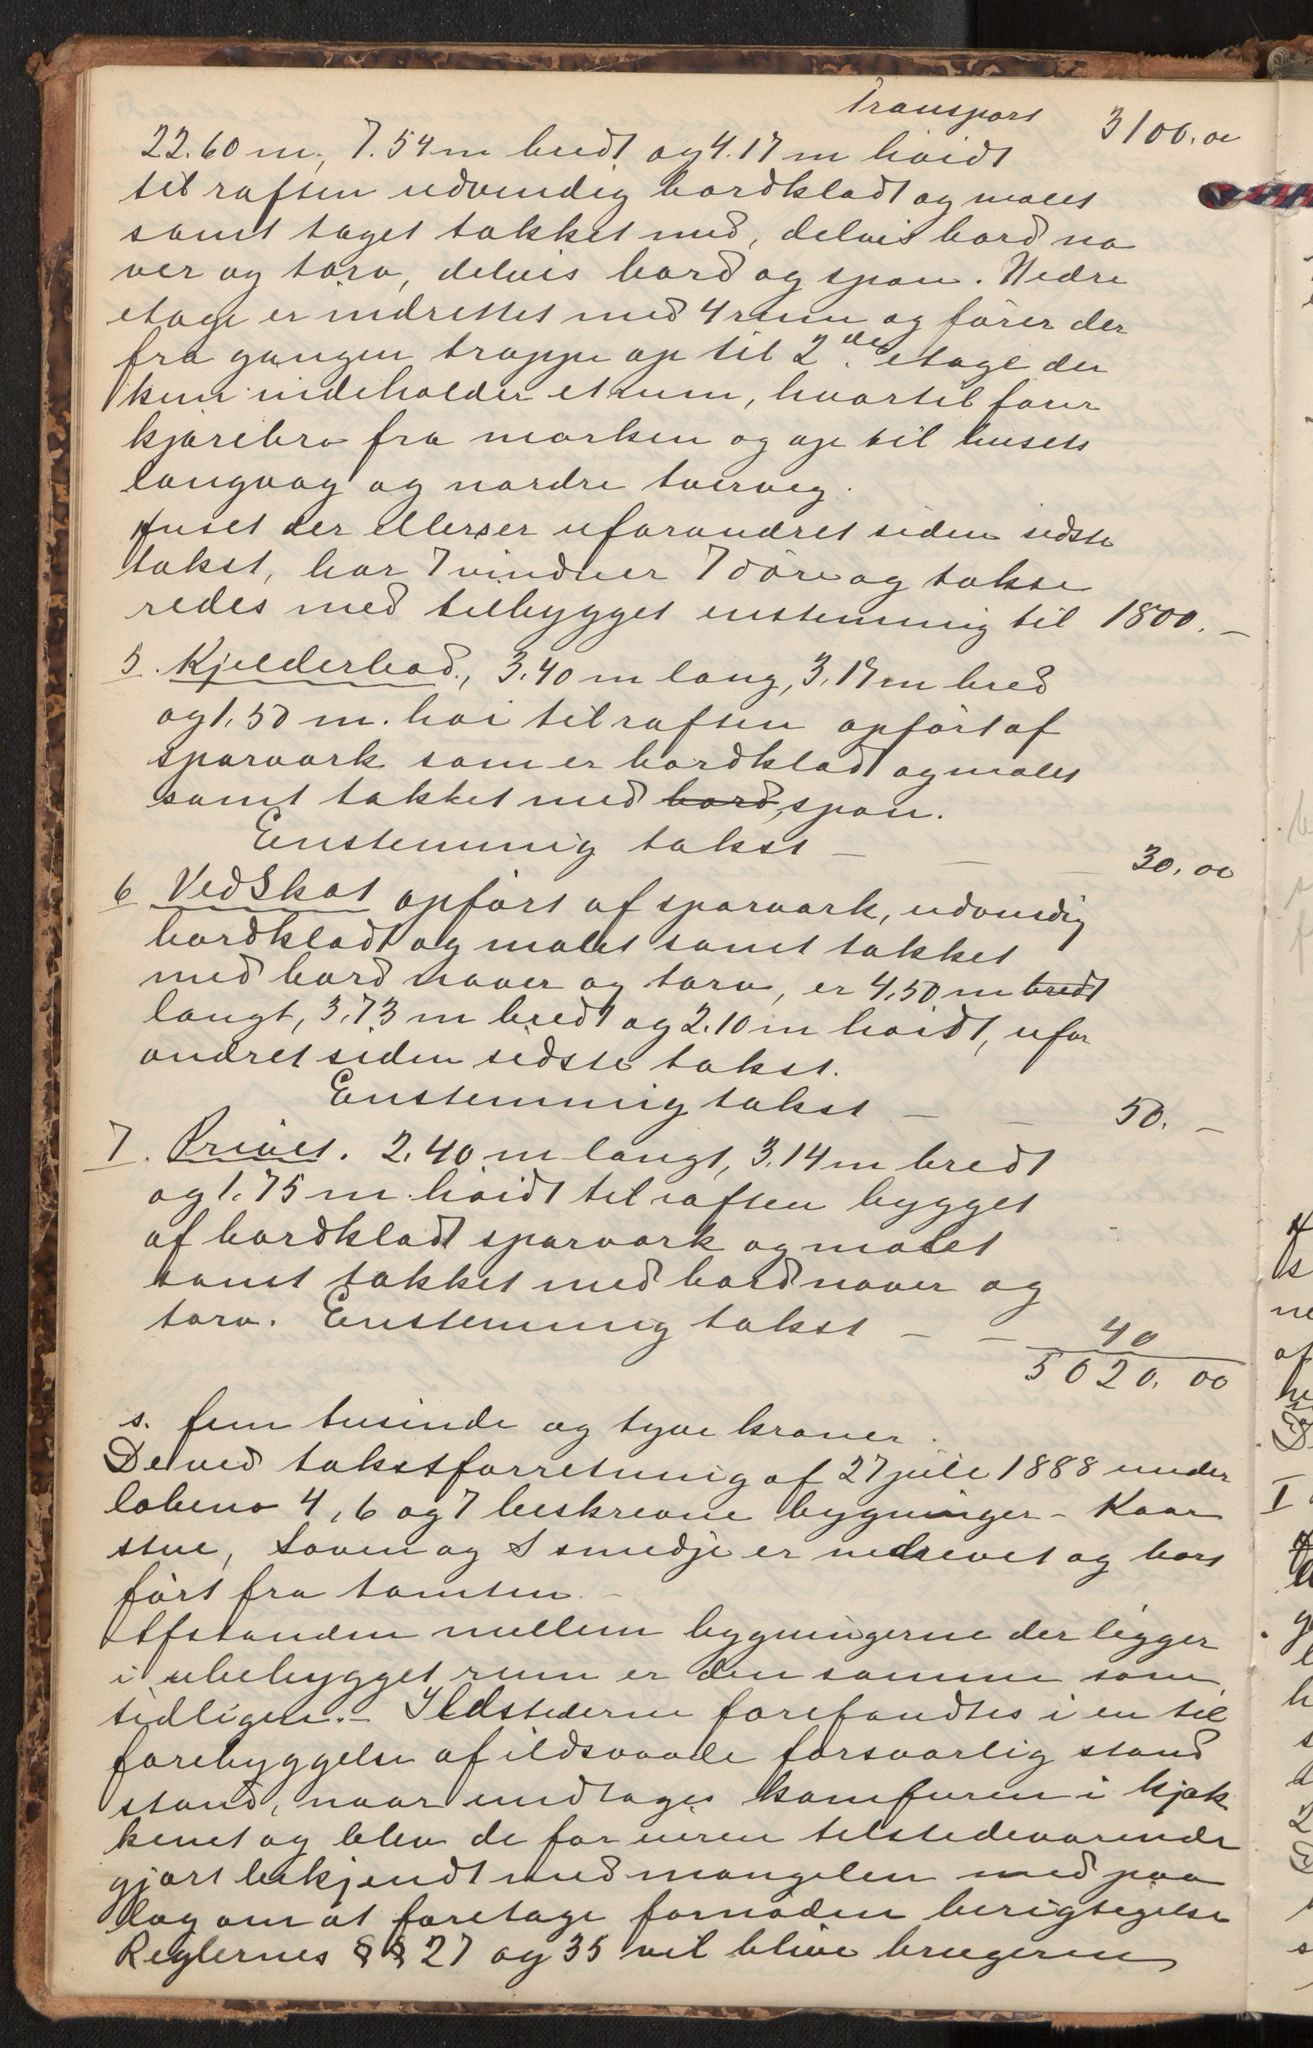 Transport 3100.00
22.60 m, 7.54 m bredt og 4.17 m höidt
til raften udvendig bordklædt og malet
samt taget tækket med, delvis bord næ
ver og törv, delvis bord og spon. Nedre
etage er indrettet med 4 rum og förer der
fra gangen trappe op til 2den etage der
kun indeholder et rum, hvortil förer
kjörebro fra marken og op til husets
langvæg og nordre tvervæg.
Huset der ellers er uforandret siden sidste
takst, har 7 vinduer 7 döre og takse
redes med tilbygget enstemmig til 1800. –
5. Kjelderbod, 3.40 m lang, 3.17 m bred
og 1.50 m. höi til raften opfört af
sparværk som er bordklædt og malet
samt tækket med bord, spon.
Enstemmig takst – – – 30.00
6 Vedskot opfört af sparværk, udvendig
bordklædt og malet samt tækket
med bord næver og törv, er 4,50 m bredt
langt, 3,73 m bredt og 2.10 m höidt, ufor
andret siden sidste takst.
Enstemmig takst – – 50. –
7. Privet. 2.40 m langt, 3.14 m bredt
og 1.75 m. höidt til raften bygget
af bordklædt sparværk og malet
samt tækket med bord næver og
törv. Enstemmig takst – – 40
5020.00
s. fem tusinde og tyve kroner.
De ved takstforretning af 27 juli 1888 under
löbeno 4, 6 og 7 beskrevne bygninger – Kaar
stue, Loven og Smedje er nedrevet og bort
fört fra tomten. –
Afstanden mellem bygningerne der ligger
i ubebygget rum er den samme som
tidligere. – Ildstederne forefandtes i en til
forebyggelse af ildsvaade forsvarlig stand
stand, naar undtages komfuren i kjök
kenet og blev de for eieren tilstedeværende
gjort bekjendt med mangelen med paa
læg om at foretage fornöden berigtigelse
Reglernes §§ 27 og 35 vil blive brugeren